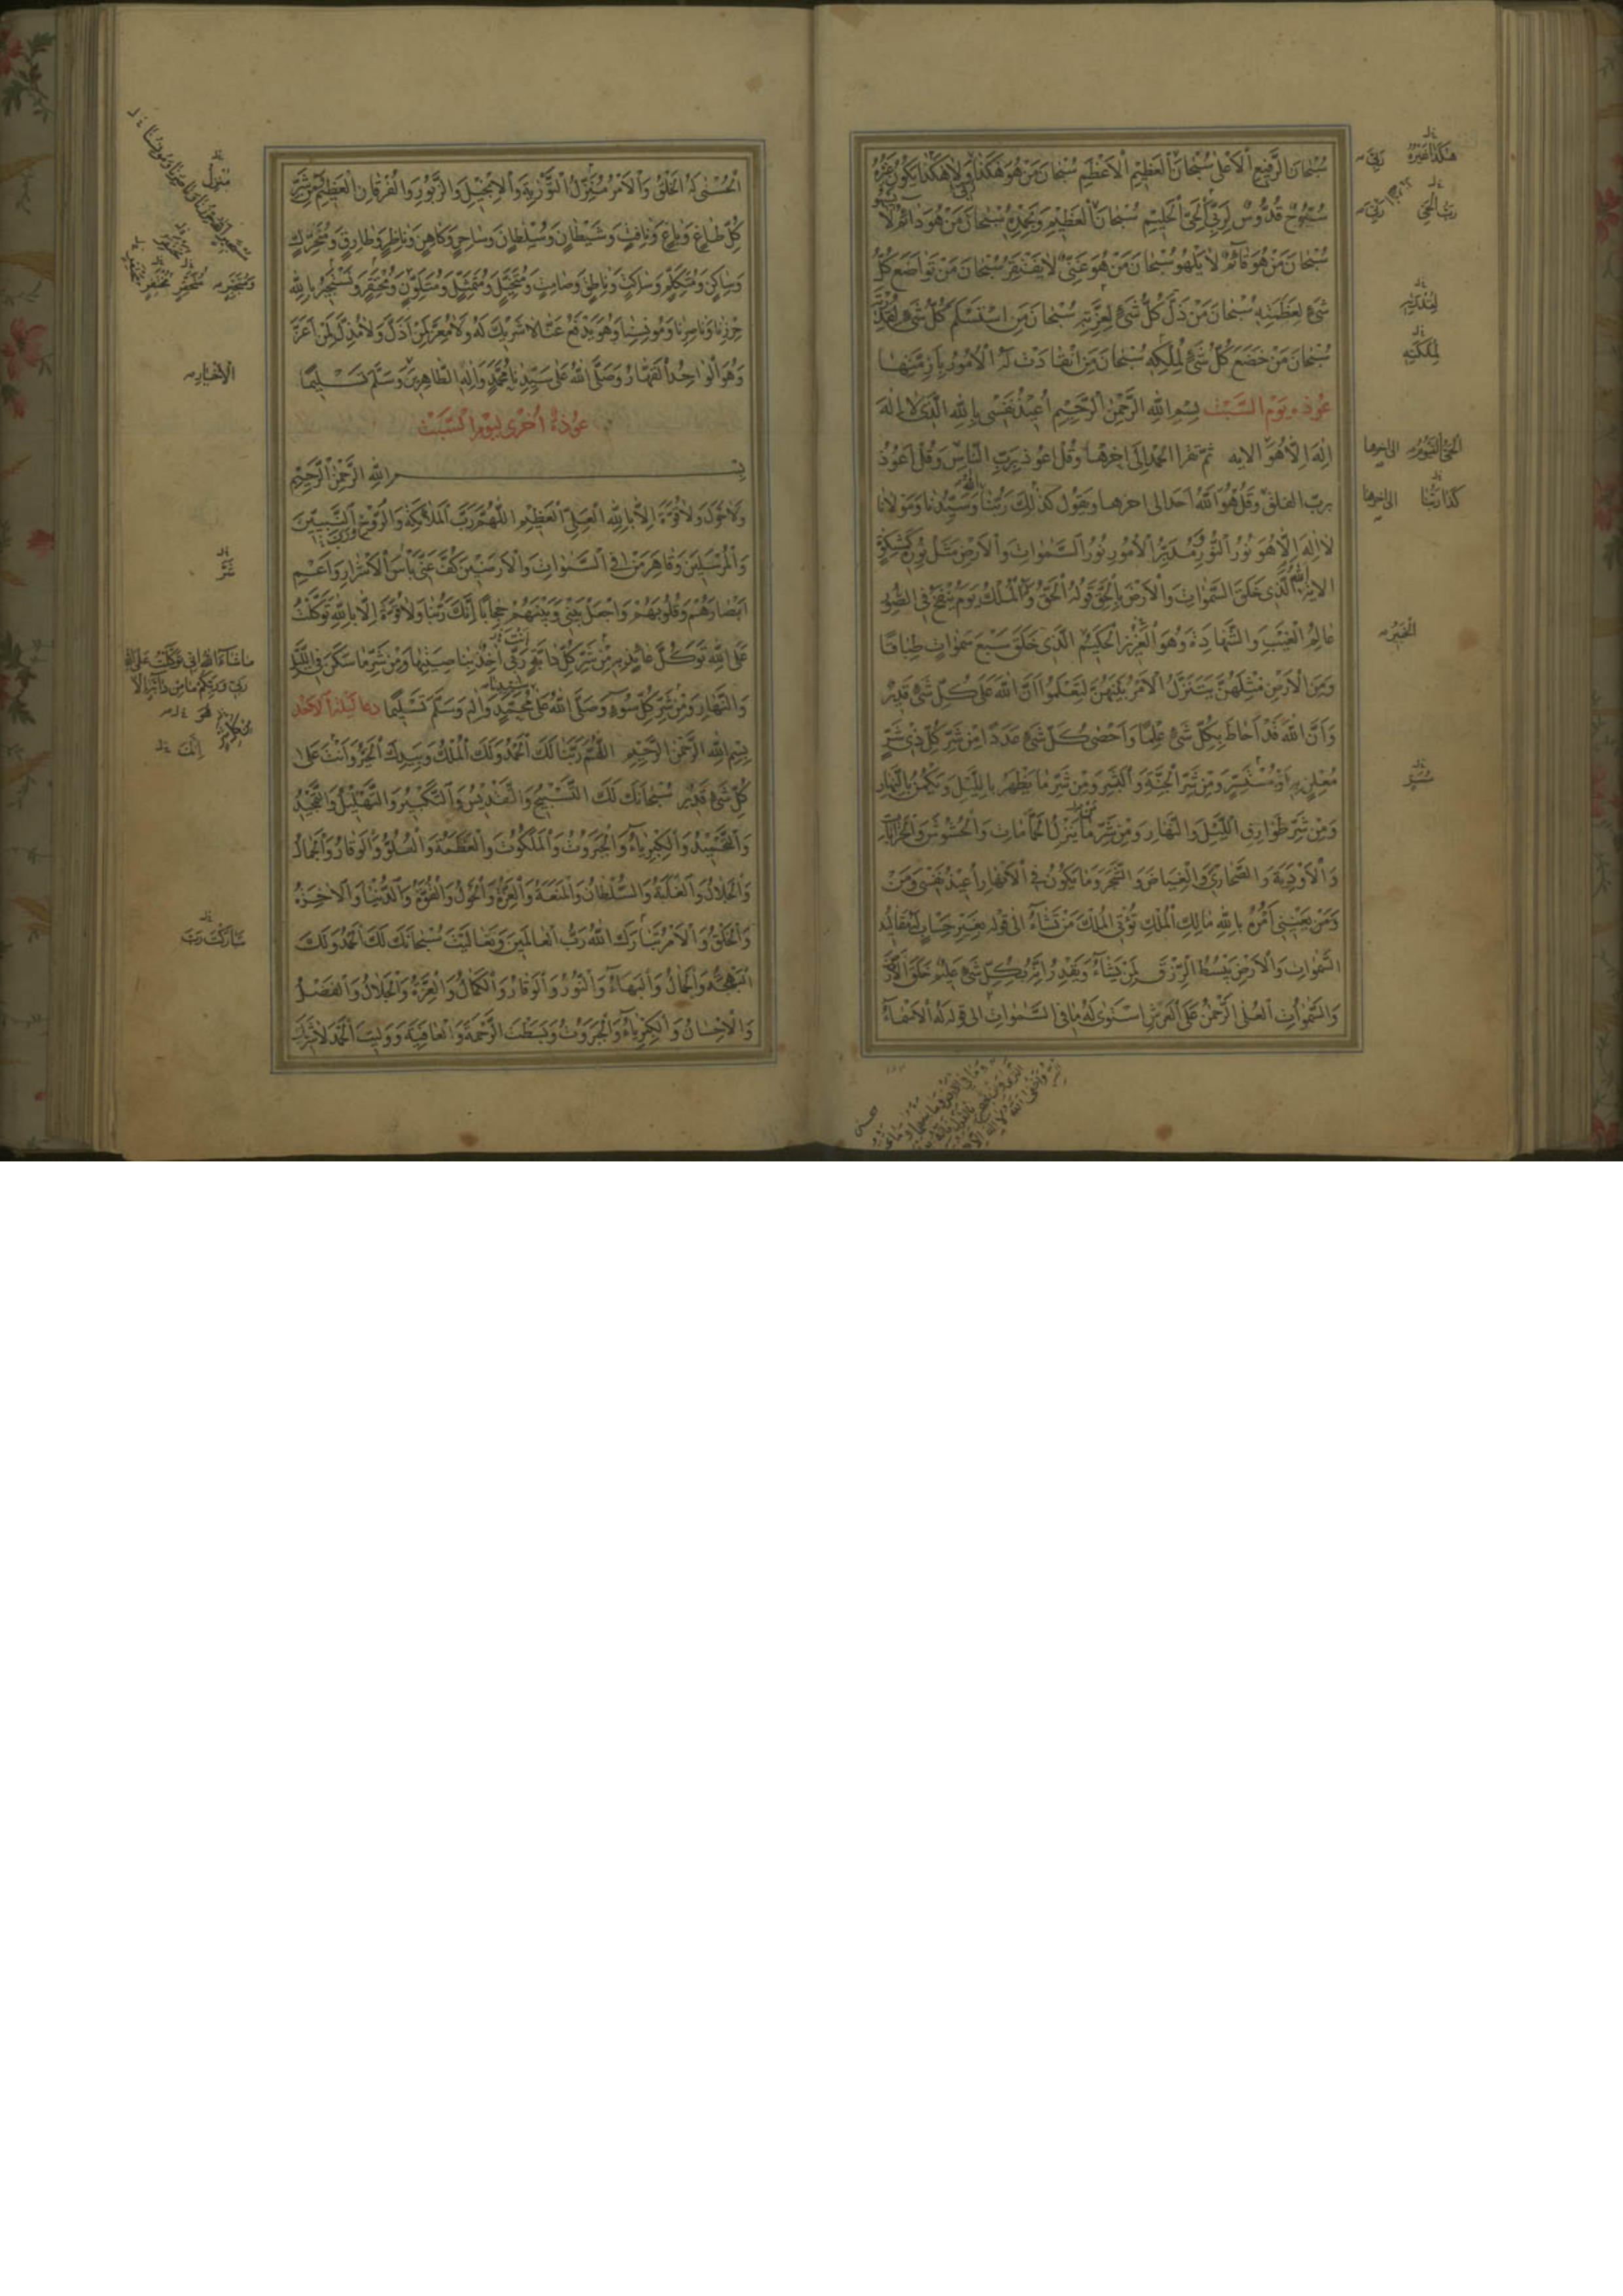 سُبْحَانَ الرَّفِيعِ الْأَعْلَى سُبْحَانَ الْعَظِيمِ الْأَعْظَمِ سُبْحَانَ مَنْ هُوَ هَكَذَا وَلَا هَكَذَا يَكُونُ غَيْرُهُ
سُبُّوحٌ قُدُّوسٌ لِرَبِّيَ الْحَيِّ الْحَلِيمِ سُبْحَانَ الْعَظِيمِ وَبِحَمْدِهِ سُبْحَانَ مَنْ هُوَ دَائِمٌ لَا
سُبْحَانَ مَنْ هُوَ قَائِمٌ لَا يَلْهُو سُبْحَانَ مَنْ هُوَ غَنِيٌّ لَا يَفْتَقِرُ سُبْحَانَ مَنْ تَوَاضَعَ كُلُّ
شَيْءٍ لِعَظَمَتِهِ سُبْحَانَ مَنْ ذَلَّ كُلُّ شَيْءٍ لِعِزَّتِهِ سُبْحَانَ مَنِ اسْتَسْلَمَ كُلُّ شَيْءٍ لِقُدْرَتِهِ
سُبْحَانَ مَنْ خَضَعَ كُلُّ شَيْءٍ لِمُلْكِهِ سُبْحَانَ مَنِ انْقَادَتْ لَهُ الْأُمُورُ بِأَزِمَّتِهَا
عوذه يَوْم السَّبْت بِسْمِ اللهِ الرَّحْمٰنِ الرَّحِيمِ أُعِيذُ نَفْسِي بِاللهِ الَّذِي لَا إِلٰهَ
إِلٰهَ إِلَّا هُوَ الايه ثمّ تقرا الحمد إلى اخرها وَقُلْ أَعُوذُ بِرَبِّ النَّاسِ وَقُلْ أَعُوذُ
بربّ الفلق وَقُلْ هُوَ اللهُ أحد الى اخرها وتقول كَذٰلِكَ رَبُّنَا وَسَيِّدُنَا وَمَوْلَانَا
لَا إِلٰهَ إِلَّا هُوَ نُورُ النُّورِ مُدَبِّرُ الْأُمُورِ نُورُ السَّمٰوَاتِ وَالْأَرْضِ مَثَلُ نُورِهِ كَمِشْكٰوةٍ
الايه الَّذِي خَلَقَ السَّمٰوَاتِ وَالْأَرْضَ بِالْحَقِّ قَوْلُهُ الْحَقُّ وَلَهُ الْمُلْكُ يَوْمَ يُنْفَخُ فِي الصُّورِ
عَالِمُ الْغَيْبِ وَالشَّهَادَةِ وَهُوَ الْعَزِيزُ الْحَكِيمُ الَّذِي خَلَقَ سَبْعَ سَمٰوَاتٍ طِبَاقًا
وَمِنَ الْأَرْضِ مِثْلَهُنَّ يَتَنَزَّلُ الْأَمْرُ بَيْنَهُنَّ لِتَعْلَمُوا أَنَّ اللهَ عَلَى كُلِّ شَيْءٍ قَدِيرٌ
وَأَنَّ اللهَ قَدْ أَحَاطَ بِكُلِّ شَيْءٍ عِلْمًا وَأَحْصَى كُلَّ شَيْءٍ عَدَدًا مِنْ شَرِّ كُلِّ ذِي شَرٍّ
مُعْلِنٍ بِهِ أَوْ مُسْتَسِرٍّ وَمِنْ شَرِّ الْجِنَّةِ وَالْبَشَرِ وَمِنْ شَرِّ مَا يَظْهَرُ بِاللَّيْلِ وَيَكْمُنُ بِالنَّهَارِ
وَمِنْ شَرِّ طَوَارِقِ اللَّيْلِ وَالنَّهَارِ وَمِنْ شَرِّ مَا يَنْزِلُ الْحَمَّامَاتِ وَالْحُشُوشَ وَالْخَرَابَاتِ
وَالْأَوْدِيَةَ وَالصَّحَارِيَ وَالْغِيَاضَ وَالشَّجَرَ وَمَا يَكُونُ فِي الْأَنْهَارِ أُعِيذُ نَفْسِي وَمَنْ
وَمَنْ يَعْنِينِي أَمْرُهُ بِاللهِ مَالِكِ الْمُلْكِ تُؤْتِي الْمُلْكَ مَنْ تَشَاءُ الى قوله بِغَيْرِ حِسَابٍ لَهُ مَقَالِيدُ
السَّمٰوَاتِ وَالْأَرْضِ يَبْسُطُ الرِّزْقَ لِمَنْ يَشَاءُ وَيَقْدِرُ إِنَّهُ بِكُلِّ شَيْءٍ عَلِيمٌ خَلَقَ الْأَرْضَ
وَالسَّمٰوَاتِ الْعُلَى الرَّحْمٰنُ عَلَى الْعَرْشِ اسْتَوَى لَهُ مَا فِي السَّمٰوَاتِ الى قوله لَهُ الْأَسْمَاءُ
هٰكَذَا غَيْرُهُ
رَبِّيَ
رَبِّ الْحَيِّ
لِقُدْرَتِهِ
لِمُلْكَتِهِ
الْحَيُّ الْقَيُّومُ الى اخرها
كَذَا رَبُّنَا الى اخرها
الْخَبِيرُ
الْحُسْنَى لَهُ الْخَلْقُ وَالْأَمْرُ مُنَزِّلُ التَّوْرٰيةِ وَالْإِنْجِيلِ وَالزَّبُورِ وَالْفُرْقَانِ الْعَظِيمِ مِنْ شَرِّ
كُلِّ طَاغٍ وَبَاغٍ وَنَافِثٍ وَشَيْطَانٍ وَسُلْطَانٍ وَسَاحِرٍ وَكَاهِنٍ وَنَاظِرٍ وَطَارِقٍ وَمُتَحَرِّكٍ
وَسَاكِنٍ وَمُتَكَلِّمٍ وَسَاكِتٍ وَنَاطِقٍ وَصَامِتٍ وَمُتَخَيِّلٍ وَمُتَمَثِّلٍ وَمُتَلَوِّنٍ وَمُحْتَقِرٍ وَنَسْتَجِيرُ بِاللهِ
حِرْزِنَا وَنَاصِرِنَا وَمُونِسِنَا وَهُوَ يَدْفَعُ عَنَّا لَا شَرِيكَ لَهُ وَلَا مُعِزَّ لِمَنْ أَذَلَّ وَلَا مُذِلَّ لِمَنْ أَعَزَّ
وَهُوَ الْوَاحِدُ الْقَهَّارُ وَصَلَّى اللهُ عَلَى سَيِّدِنَا مُحَمَّدٍ وَآلِهِ الطَّاهِرِينَ وَسَلَّمَ تَسْلِيمًا
عُوْذَةٌ أُخْرَى لِيَوْمِ السَّبْتِ
بِسْمِ اللهِ الرَّحْمٰنِ الرَّحِيمِ
وَلَا حَوْلَ وَلَا قُوَّةَ إِلَّا بِاللهِ الْعَلِيِّ الْعَظِيمِ اللَّهُمَّ رَبَّ الْمَلَائِكَةِ وَالرُّوحِ وَالنَّبِيِّينَ
وَالْمُرْسَلِينَ وَقَاهِرَ مَنْ فِي السَّمٰوَاتِ وَالْأَرَضِينَ كُفَّ عَنِّي بَأْسَ الْأَشْرَارِ وَأَعْمِ
أَبْصَارَهُمْ وَقُلُوبَهُمْ وَاجْعَلْ بَيْنِي وَبَيْنَهُمْ حِجَابًا إِنَّكَ رَبُّنَا وَلَا قُوَّةَ إِلَّا بِاللهِ تَوَكَّلْتُ
عَلَى اللهِ تَوَكُّلَ عَائِذٍ بِهِ مِنْ شَرِّ كُلِّ دَابَّةٍ رَبِّي آخِذٌ بِنَاصِيَتِهَا وَمِنْ شَرِّ مَا سَكَنَ فِي اللَّيْلِ
وَالنَّهَارِ وَمِنْ شَرِّ كُلِّ سُوءٍ وَصَلَّى اللهُ عَلَى مُحَمَّدٍ وَآلِهِ وَسَلَّمَ تَسْلِيمًا دعا ليلة الاحد
بِسْمِ اللهِ الرَّحْمٰنِ الرَّحِيمِ اللَّهُمَّ رَبَّنَا لَكَ الْحَمْدُ وَلَكَ الْمُلْكُ وَبِيَدِكَ الْخَيْرُ وَأَنْتَ عَلَى
كُلِّ شَيْءٍ قَدِيرٌ سُبْحَانَكَ لَكَ التَّسْبِيحُ وَالتَّقْدِيسُ وَالتَّكْبِيرُ وَالتَّهْلِيلُ وَالتَّمْجِيدُ
وَالتَّحْمِيدُ وَالْكِبْرِيَاءُ وَالْجَبَرُوتُ وَالْمَلَكُوتُ وَالْعَظَمَةُ وَالْعُلُوُّ وَالْوَقَارُ وَالْجَمَالُ
وَالْجَلَالُ وَالْغَلَبَةُ وَالسُّلْطَانُ وَالْمَنَعَةُ وَالْعِزَّةُ وَالْحَوْلُ وَالْقُوَّةُ وَالدُّنْيَا وَالْآخِرَةُ
وَالْخَلْقُ وَالْأَمْرُ تَبَارَكَ اللهُ رَبُّ الْعَالَمِينَ وَتَعَالَيْتَ سُبْحَانَكَ لَكَ الْحَمْدُ وَلَكَ
الْبَهْجَةُ وَالْجَمَالُ وَالْبَهَاءُ وَالنُّورُ وَالْوَقَارُ وَالْكَمَالُ وَالْعِزَّةُ وَالْجَلَالُ وَالْفَضْلُ
وَالْإِحْسَانُ وَالْكِبْرِيَاءُ وَالْجَبَرُوتُ وَبَسَطْتَ الرَّحْمَةَ وَالْعَافِيَةَ وَوَلِيتَ الْحَمْدَ لَا شَرِيكَ
مُنْزِلُ
شَرَّ
مَا شَاءَ اللهُ إِنِّي تَوَكَّلْتُ عَلَى اللهِ
رَبِّي وَرَبِّكُمْ مَا مِنْ دَابَّةٍ إِلَّا
هُوَ
أَنْتَ
تَبَارَكْتَ رَبَّ